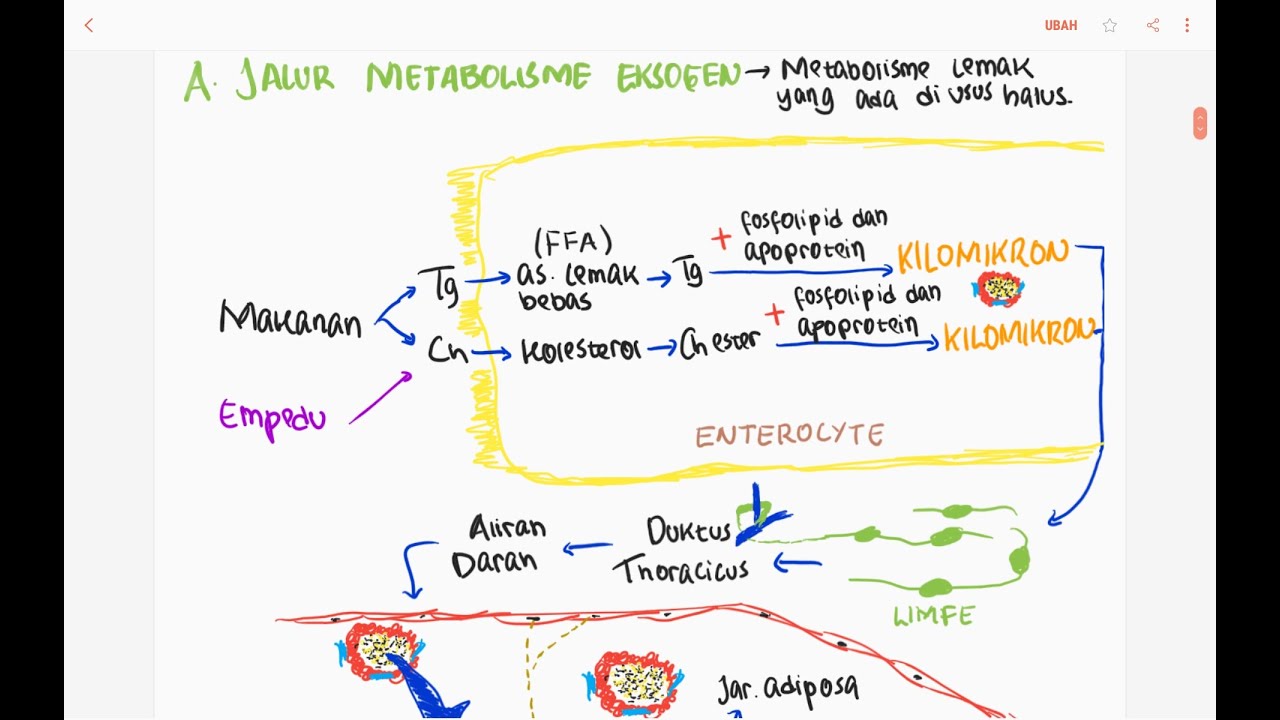 UBAH
A. JALUR METABOLISME EKSOGEN → Metabolisme lemak
yang ada di usus halus.
(FFA)
as. lemak
bebas
Tg
Tg
+ fosfolipid dan
apoprotein
KILOMIKRON
Makanan
Ch
Kolesterol
Ch ester
+ fosfolipid dan
apoprotein
KILOMIKRON
Empedu
ENTEROCYTE
Aliran
Darah
Duktus
Thoracicus
LIMFE
Jar. adiposa